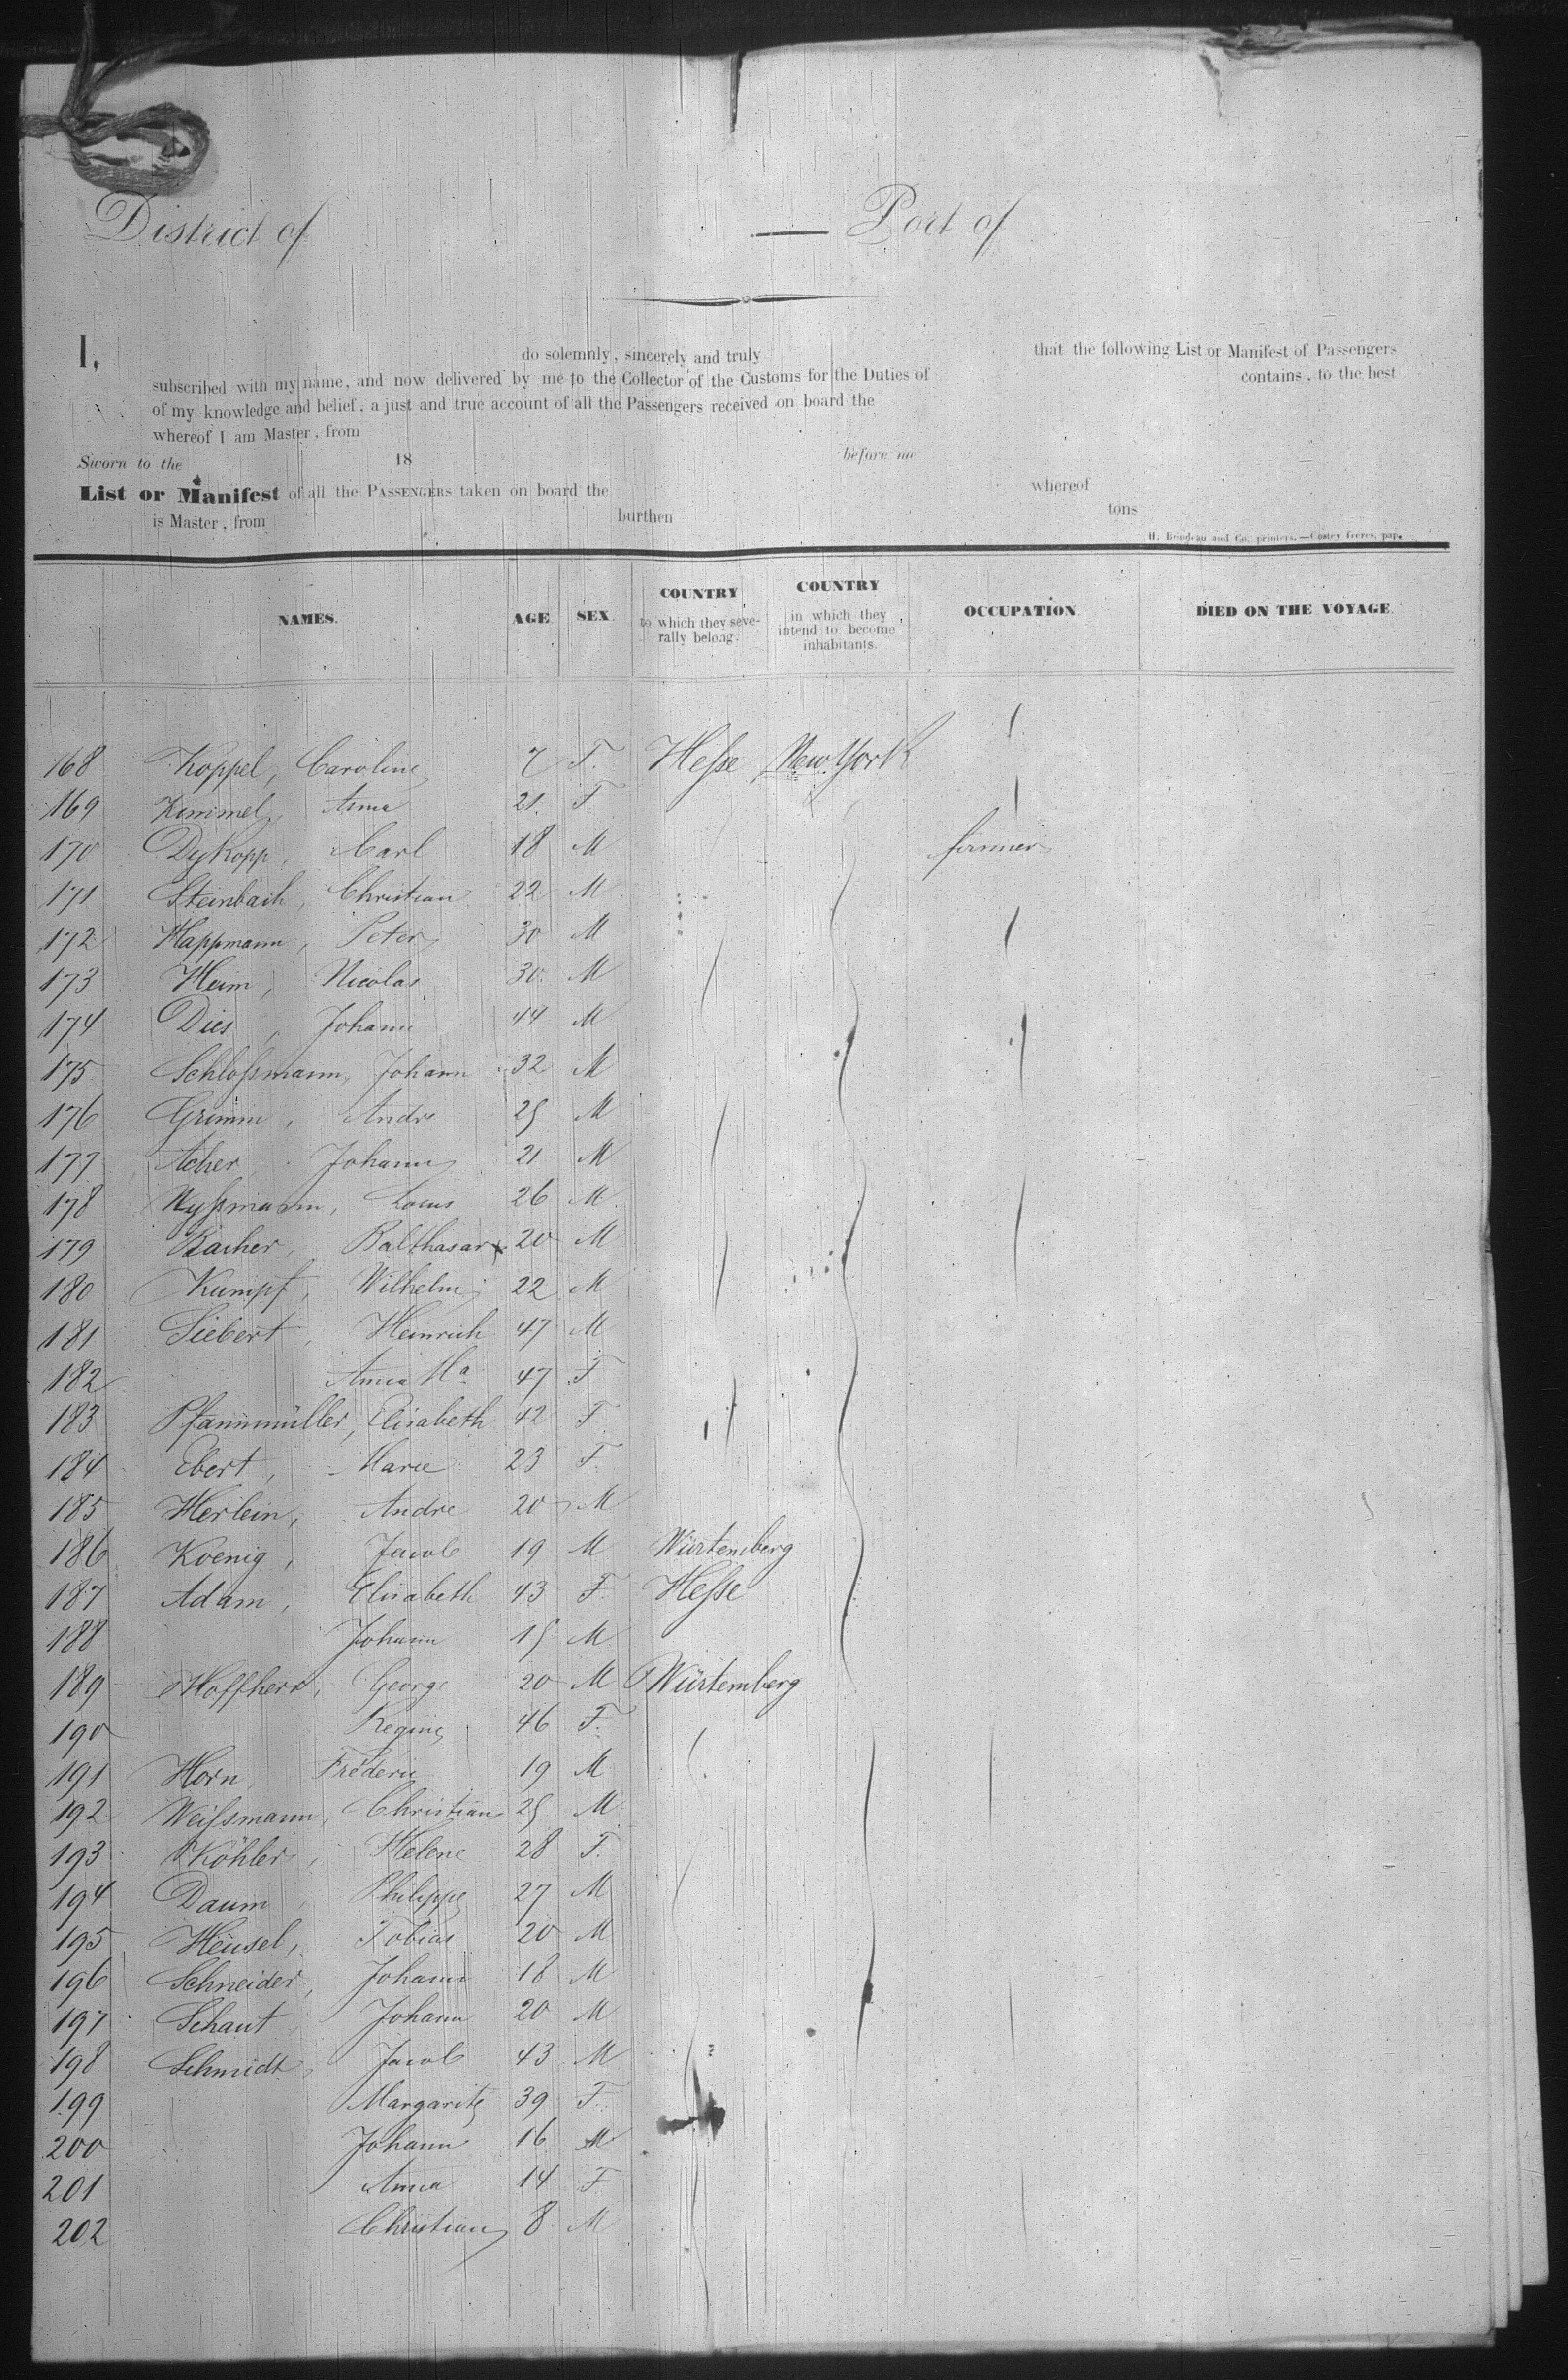 District of — Port of
I, do solemnly, sincerely and truly that the following List or Manifest of Passengers
subscribed with my name, and now delivered by me to the Collector of the Customs for the Duties of contains, to the best
of my knowledge and belief, a just and true account of all the Passengers received on board the
whereof I am Master, from
Sworn to the 18 before me
List or Manifest of all the PASSENGERS taken on board the whereof
is Master, from burthen tons
H. Brindeau and Co. printers.—Costey freres, pap.
NAMES. AGE SEX. COUNTRY to which they severally belong. COUNTRY in which they intend to become inhabitants. OCCUPATION. DIED ON THE VOYAGE.
168 Koppel, Caroline 7 F. Hesse New York
169 Kimmel, Anna 21. F
170 Dykopp, Carl 18 M farmer
171 Steinbach, Christian 22 M
172 Happmann, Peter 30 M
173 Heim, Nicolas 30. M
174 Dies, Johann 44 M
175 Schlossmann, Johann 32 M
176 Grimm, Andre 25 M
177 Acher, Johann 21 M
178 Nyssmann, Louis 26 M.
179 Bacher, Balthasar 20 M
180 Kumpf, Wilhelm 22 M
181 Siebert, Heinrich 47 M
182 Anna Ma 47 F
183 Pfannmüller, Elisabeth 42 F
184 Ebert, Marie 23 F.
185 Herlein, Andre 20 M
186 Koenig, Jacob 19 M Würtemberg
187 Adam, Elisabeth 43 F. Hesse
188 Johann 15 M.
189 Hoffherr, George 20 M Würtemberg
190 Regine 46 F.
191 Horn Fréderic 19 M
192 Weissmann, Christian 25 M.
193 Köhler, Helene 28 F.
194 Daum, Philippe 27 M
195 Heusel, Tobias 20 M
196 Schneider, Johann 18 M
197 Schaut, Johann 20 M
198 Schmidt, Jacob 43 M
199 Margarite 39 F.
200 Johann 16 M
201 Anna 14 F
202 Christian 8 M